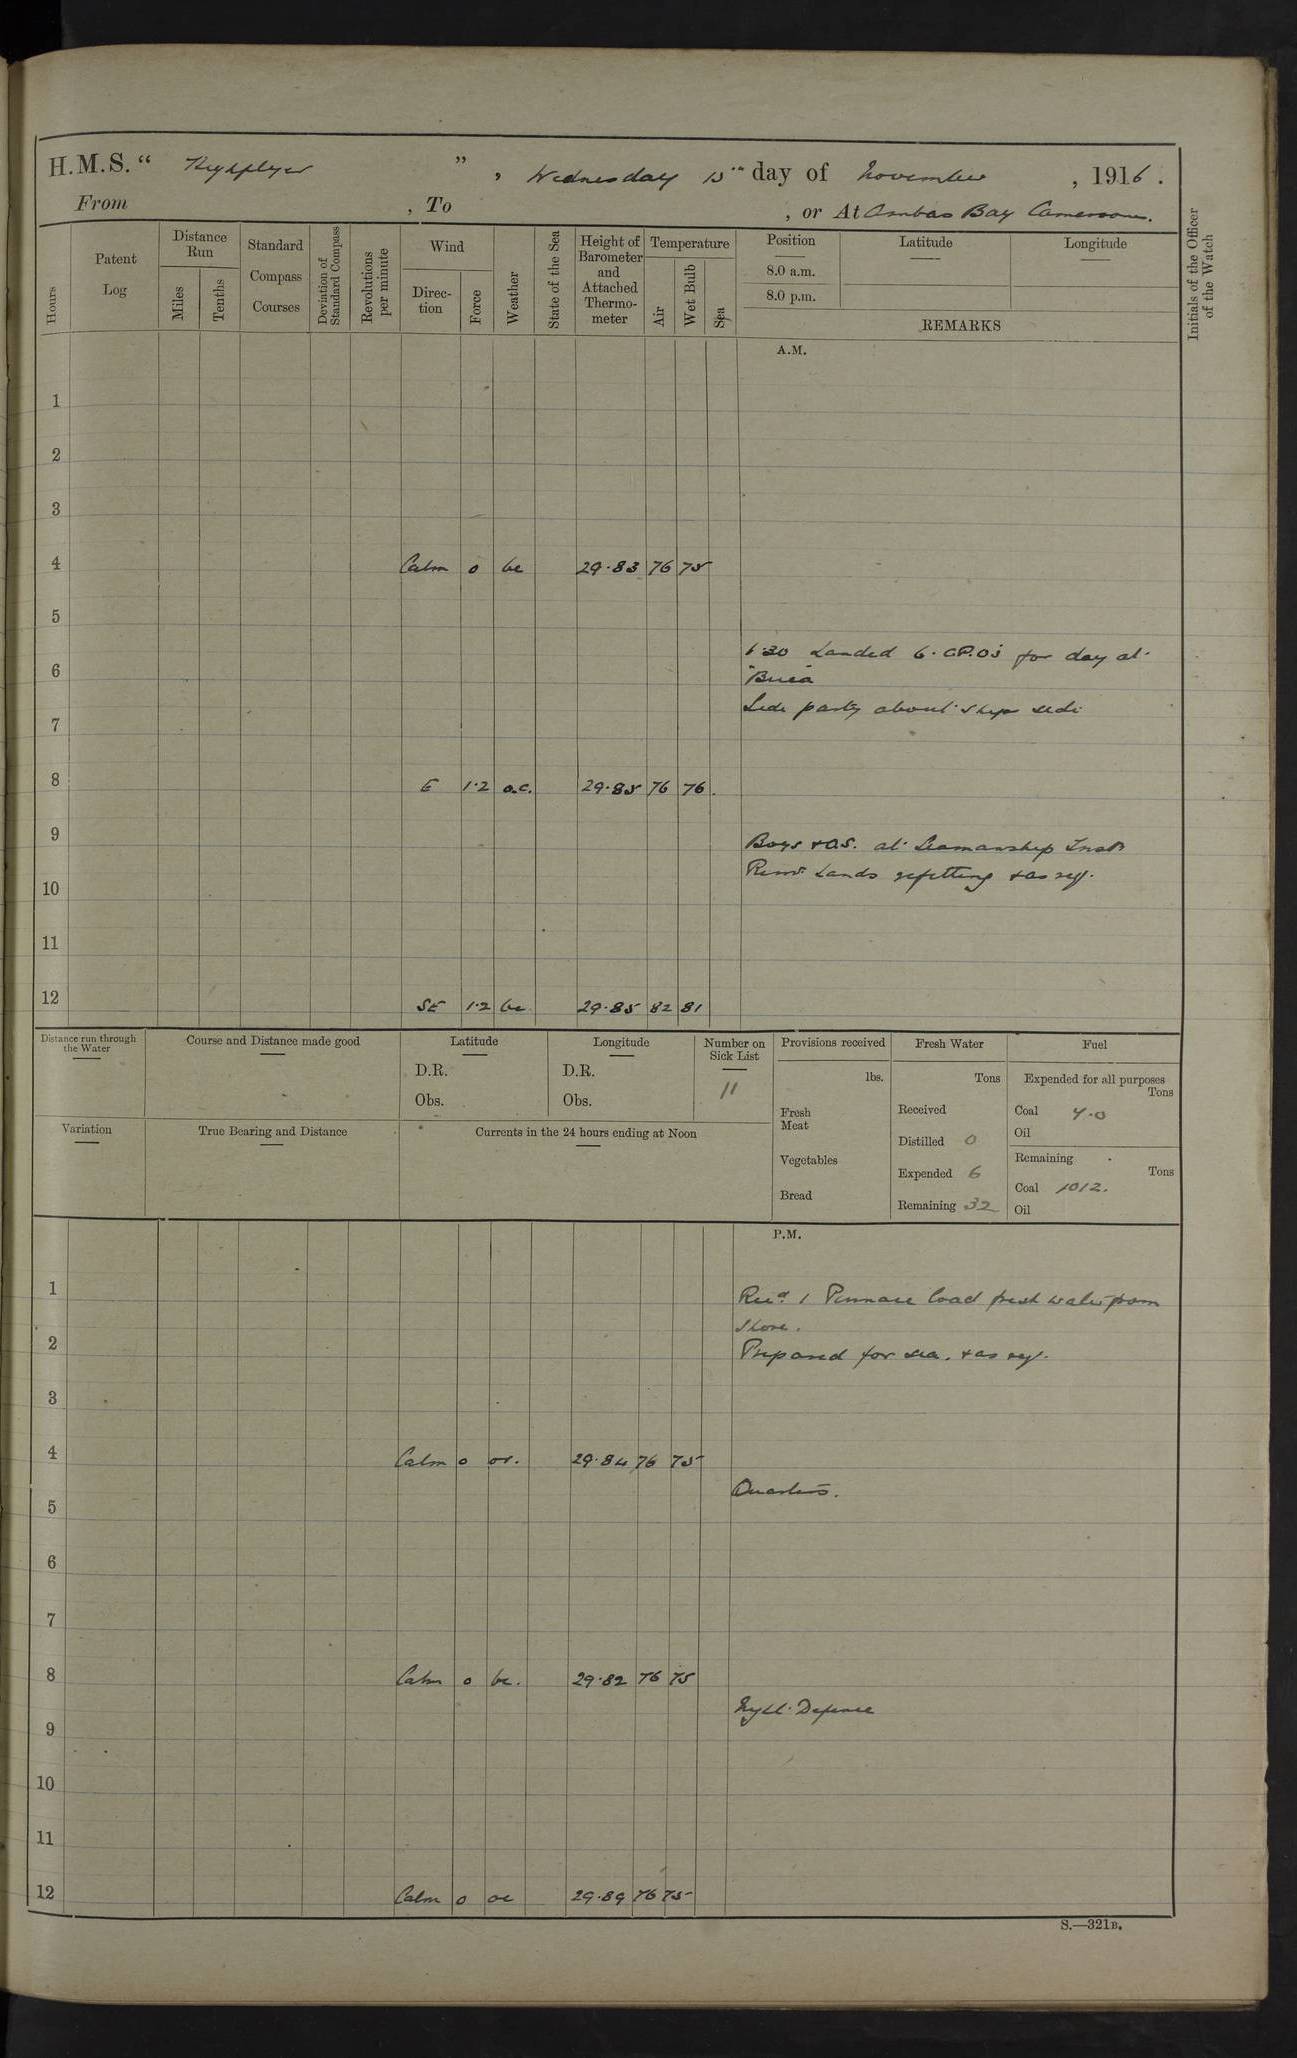 H.M.S. “ Highflyer ” , Wednesday 15th day of November , 1916 .
From , To , or At Ambas Bay Cameroons.
Hours
Patent Log
Distance Run
Miles
Tenths
Standard Compass Courses
Deviation of Standard Compass
Revolutions per minute
Wind
Direc- tion
Force
Weather
State of the Sea
Height of Barometer and Attached Thermo- meter
Temperature
Air
Wet Bulb
Sea
Position
8.0 a.m.
8.0 p.m.
Latitude
Longitude
REMARKS
Initials of the Officer of the Watch
A.M.
1
2
3
4 Calm 0 bc 29.83 76 75
5
6.30 Landed 6. C.P.O's for day at
6 "Buea"
Side party about ship side
7
8 E 1.2 o.c. 29.85 76 76.
9
Boys & O.S. at Seamanship Instn
Remr hands refitting & as req.
10
11
12 SE 1.2 bc 29.85 82 81
Distance run through the Water
Course and Distance made good
Latitude
D.R.
Obs.
Longitude
D.R.
Obs.
Number on Sick List
11
Provisions received
lbs.
Fresh Meat
Vegetables
Bread
Fresh Water
Tons
Received
Distilled 0
Expended 6
Remaining 32
Fuel
Expended for all purposes
Tons
Coal 4.0
Oil
Remaining
Tons
Coal 1012.
Oil
Variation
True Bearing and Distance
Currents in the 24 hours ending at Noon
P.M.
1
Recd. 1 Pinnace load fresh water from
shore.
2
Prepared for sea. & as req.
3
4 Calm 0 or. 29.84 76 75
Quarters.
5
6
7
8 Calm 0 bc. 29.82 76 75
Night Defence
9
10
11
12 Calm 0 oc 29.89 76 75
S.—321B.